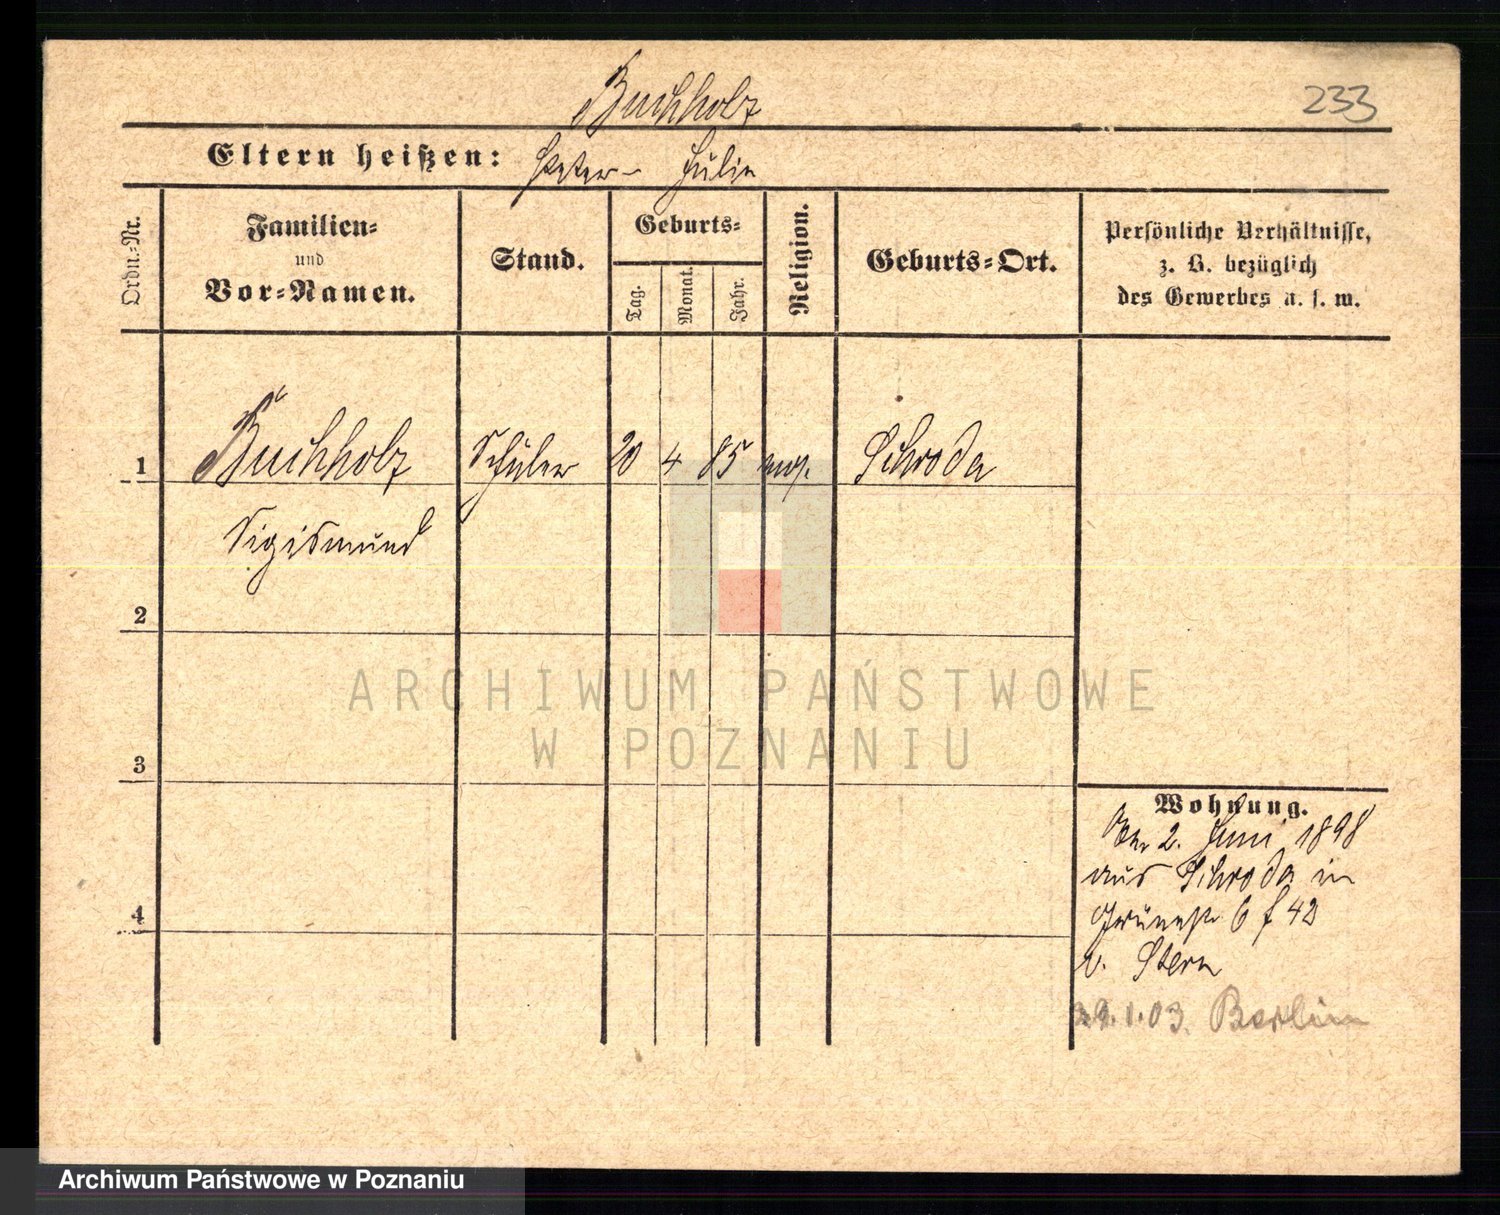 Buchholz
233
Eltern heißen: Peter - Julie
Ordn.-Nr.
Familien-
und
Vor-Namen.
Stand.
Geburts-
Tag.
Monat.
Jahr.
Religion.
Geburts-Ort.
Persönliche Verhältnisse,
z. B. bezüglich
des Gewerbes u. s. w.
1 Buchholz Schüler 20 4 85 evg. Schroda
Sigismund
2
3
4
Wohnung.
2. Juni 1898
aus Schroda in
Grünestr 6 42
b. Stern
29.1.03. Berlin
ARCHIWUM PAŃSTWOWE
W POZNANIU
Archiwum Państwowe w Poznaniu